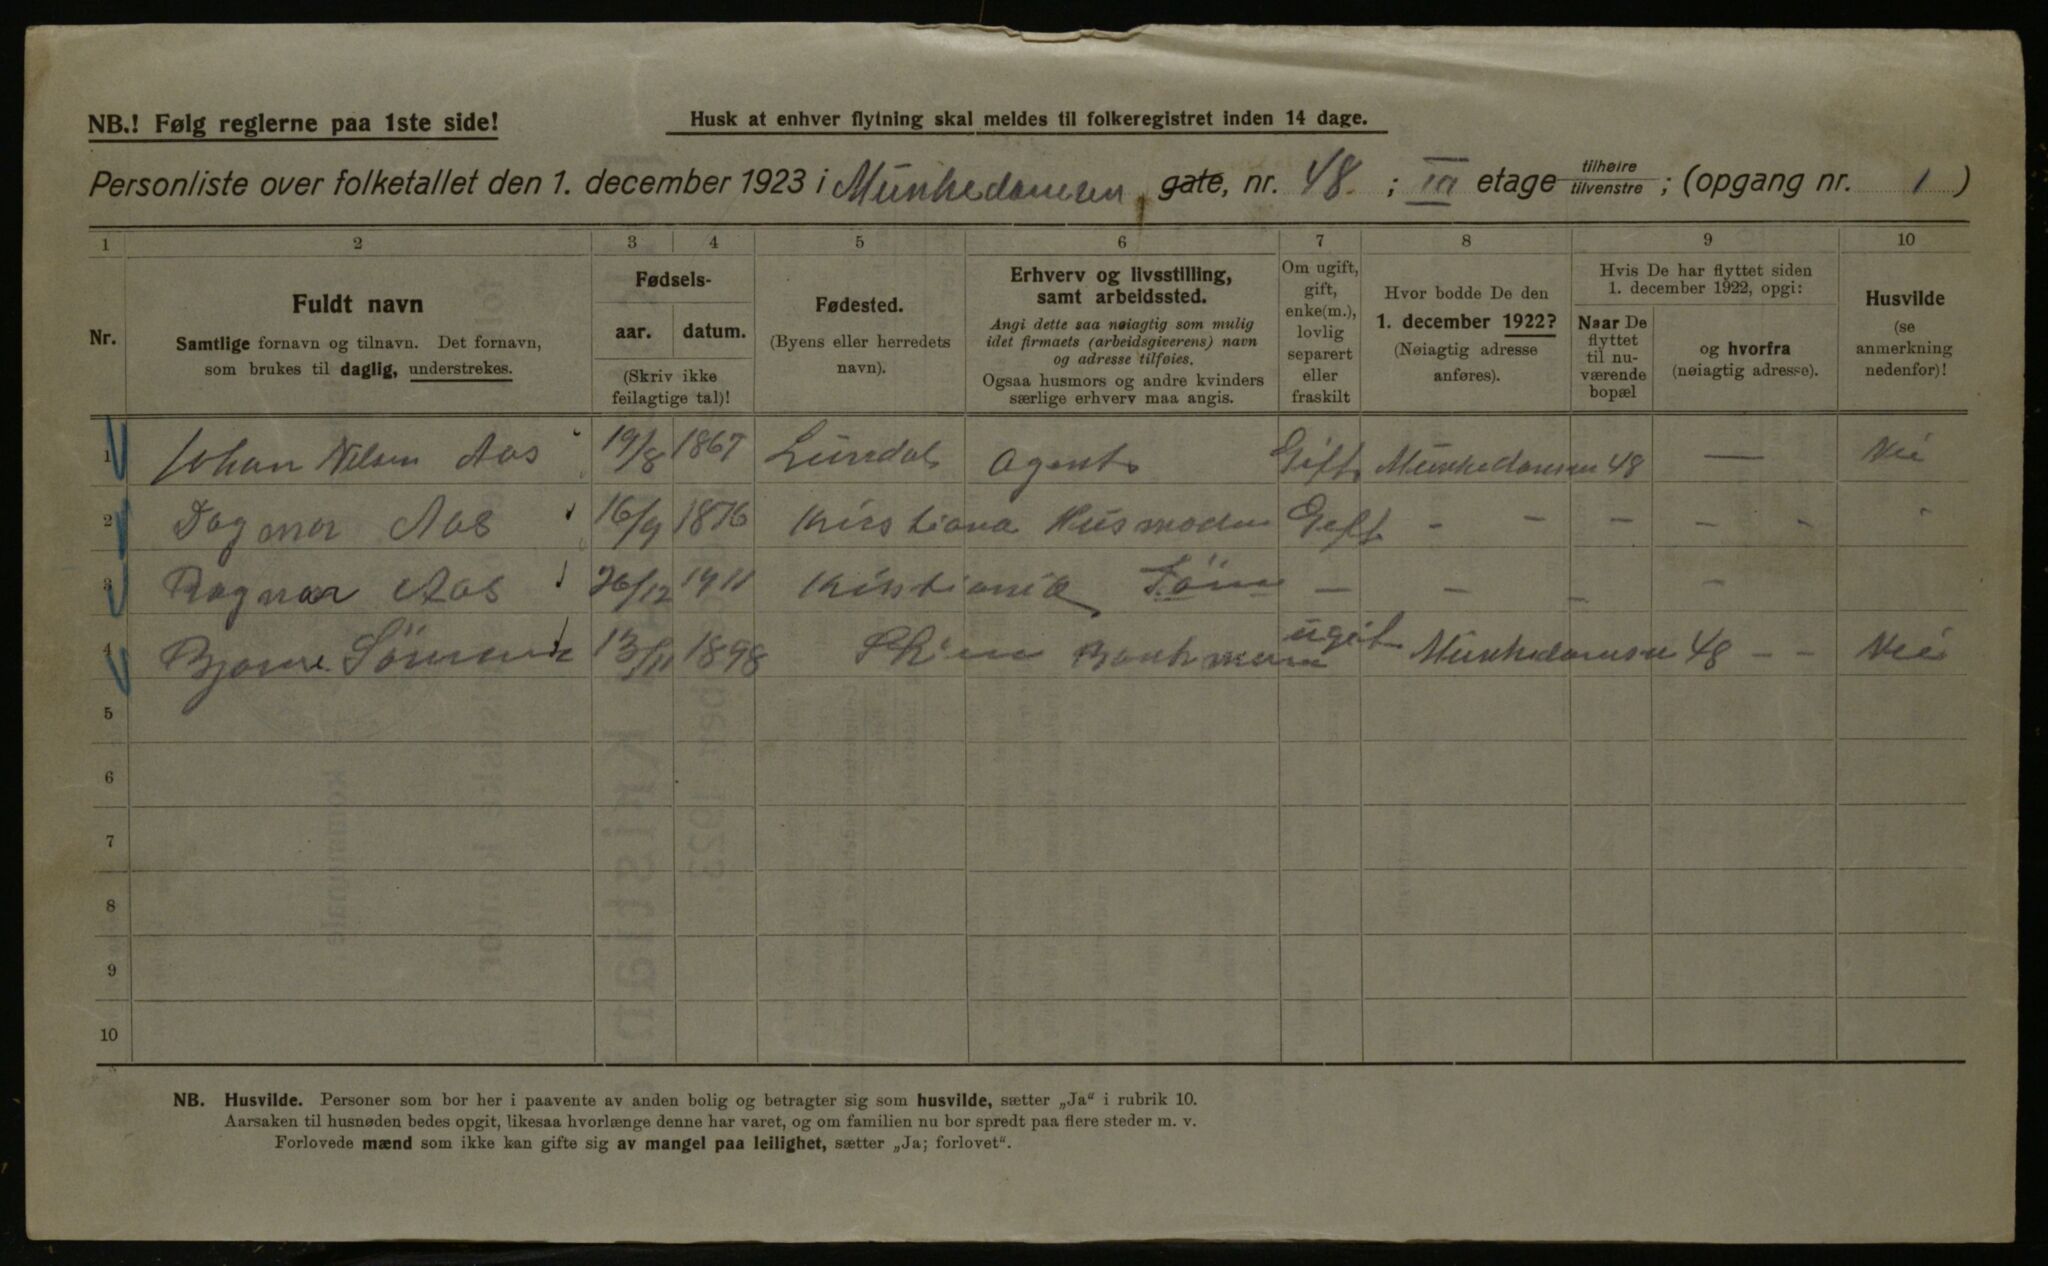 NB.! Følg reglerne paa 1ste side!
Husk at enhver flytning skal meldes til folkeregistret inden 14 dage.
Personliste over folketallet den 1. december 1923 i Munkedamsvn gate, nr. 48. ; III etage tilhøire tilvenstre ; (opgang nr. 1 )
1 2 3 4 5 6 7 8 9 10
Nr.
Fuldt navn
Samtlige fornavn og tilnavn. Det fornavn,
som brukes til daglig, understrekes.
Fødsels-
aar. datum.
(Skriv ikke
feilagtige tal)!
Fødested.
(Byens eller herredets
navn).
Erhverv og livsstilling,
samt arbeidssted.
Angi dette saa nøiagtig som mulig
idet firmaets (arbeidsgiverens) navn
og adresse tilføies.
Ogsaa husmors og andre kvinders
særlige erhverv maa angis.
Om ugift,
gift,
enke(m.),
lovlig
separert
eller
fraskilt
Hvor bodde De den
1. december 1922?
(Nøiagtig adresse
anføres).
Hvis De har flyttet siden
1. december 1922, opgi:
Naar De
flyttet
til nu-
værende
bopæl
og hvorfra
(nøiagtig adresse).
Husvilde
(se
anmerkning
nedenfor)!
1 Johan Nilsen Aas 19/8 1867 Agent Gift Munkedamsvn 48 — Nei
2 Dagmar Aas 16/9 1876 Kristiania Husmoder Gift - - - - - -
3 Ragnar Aas 26/12 1911 Kristiania Sön — - - -
4 Bjarne 13/11 1898 Skien Bankmann ugift Munkedamsvn 48 - - Nei
5
6
7
8
9
10
NB. Husvilde. Personer som bor her i paavente av anden bolig og betragter sig som husvilde, sætter „Ja“ i rubrik 10.
Aarsaken til husnøden bedes opgit, likesaa hvorlænge denne har varet, og om familien nu bor spredt paa flere steder m. v.
Forlovede mænd som ikke kan gifte sig av mangel paa leilighet, sætter „Ja; forlovet“.